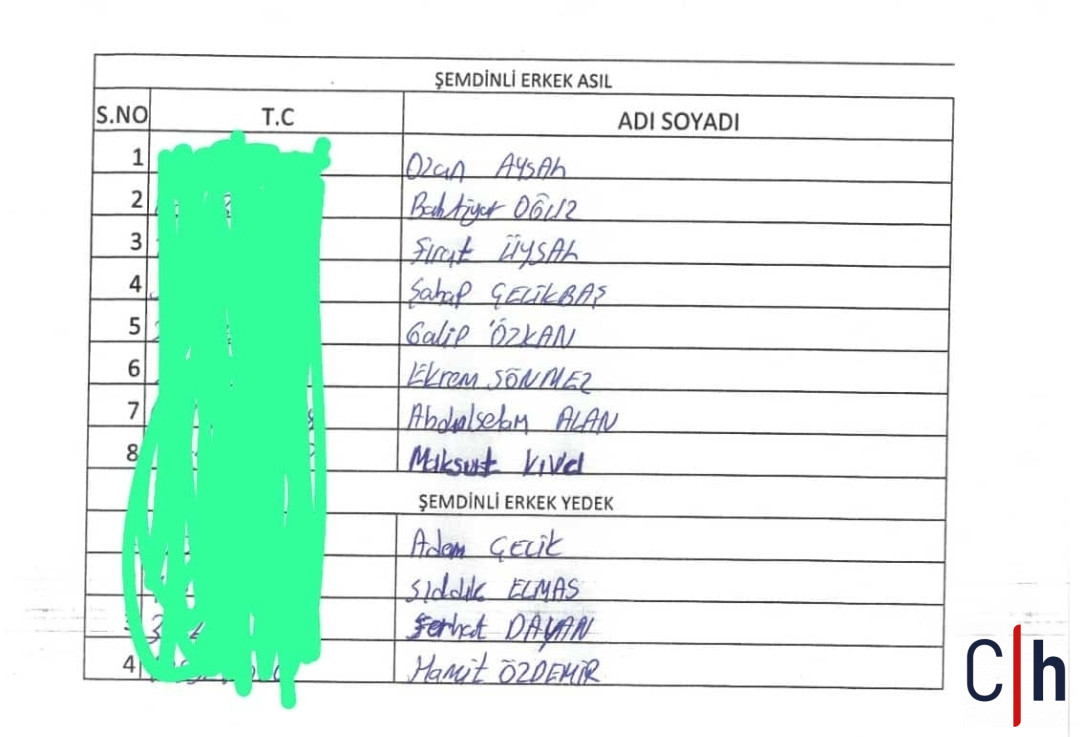 ŞEMDİNLİ ERKEK ASIL
S.NO T.C ADI SOYADI
1 Ozan AYSAL
2 Bahtiyar OĞUZ
3 Fırat ÜYSAL
4 Şahap ÇELİKBAŞ
5 Galip ÖZKAN
6 Ekrem SÖNMEZ
7 Abdulselam ALAN
8 Maksut
ŞEMDİNLİ ERKEK YEDEK
Adem ÇELİK
Sıddık ELMAS
3 Ferhat DAYAN
4 Hamit ÖZDEMİR
C|h